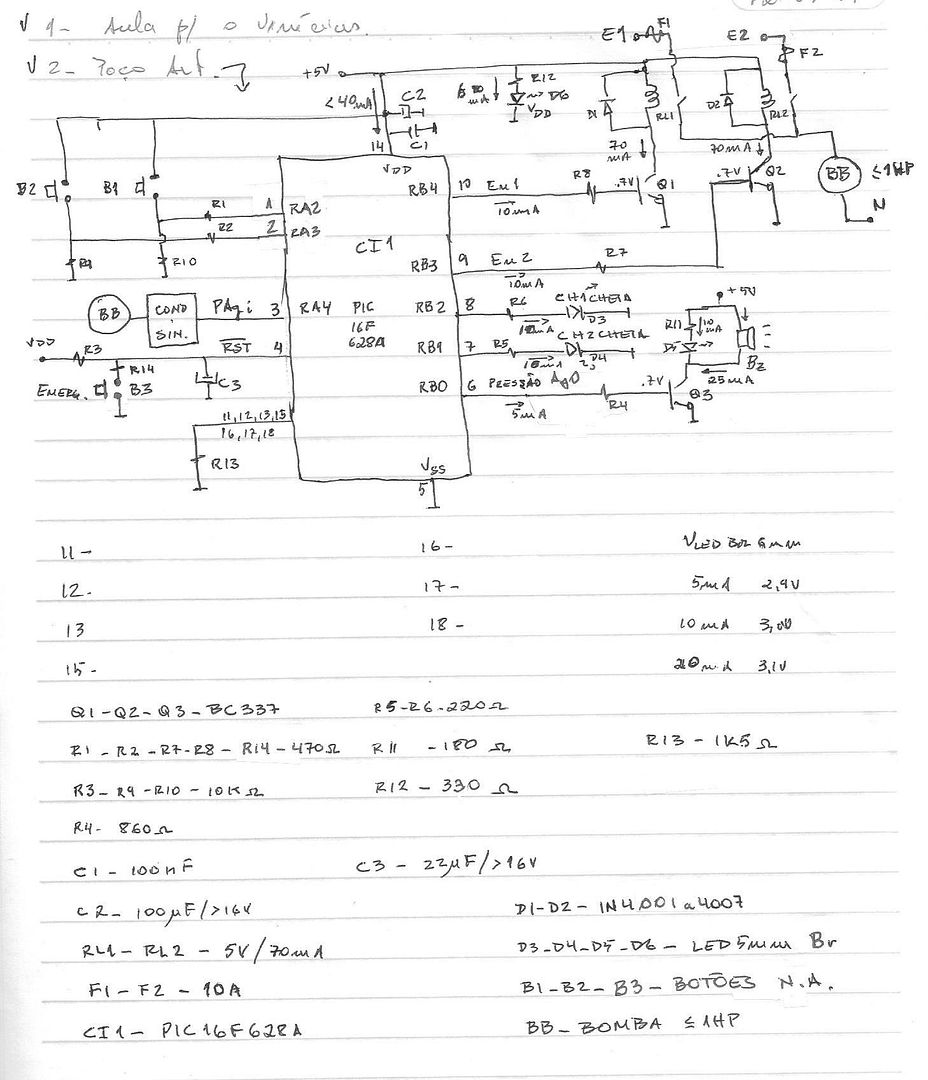 √ 1- Aula p/ o Vinícius.
√ 2- Poço Art.
E1 F1 E2 F2
+5V <40mA C2 C1 R12 D6 VDD D1 RL1 D2 RL2
14 VDD 70 mA 70mA
B2 B1 BB ≤1HP N
R1 1 RA2 RB4 10 En1 10mA R8 .7V Q1 .7V Q2
R2 2 RA3 CI1
R9 R10 RB3 9 En2 10mA R7
BB COND SIN. PAgi 3 RA4 PIC 16F 628A RB2 8 R6 10mA CH1CHEIA D3 +5V
VDD R3 RST 4 RB1 7 R5 10mA CH2CHEIA D4 R11 10 mA D5 Bz
EMERG. R14 B3 C3 RB0 6 PRESSÃO 5mA R4 .7V Q3 25mA
11,12,13,15
16,17,18
R13
VSS
5
11- 16- VLED
12. 17- 5mA 2,9V
13 18- 10mA
15- 3,1V
Q1-Q2-Q3-BC337 R5-R6-220Ω
R1-R2-R7-R8-R14-470Ω R11 -180 Ω R13-1K5 Ω
R3-R9-R10-10KΩ R12 - 330 Ω
R4- 860Ω
C1-100nF C3 - 22µF/>16V
C2-100µF/>16V D1-D2-1N4001a4007
RL1-RL2-5V/70mA D3-D4-D5-D6-LED5mm Br
F1-F2-10A B1-B2-B3-BOTÕES N.A.
CI1-PIC16F628A BB-BOMBA ≤1HP